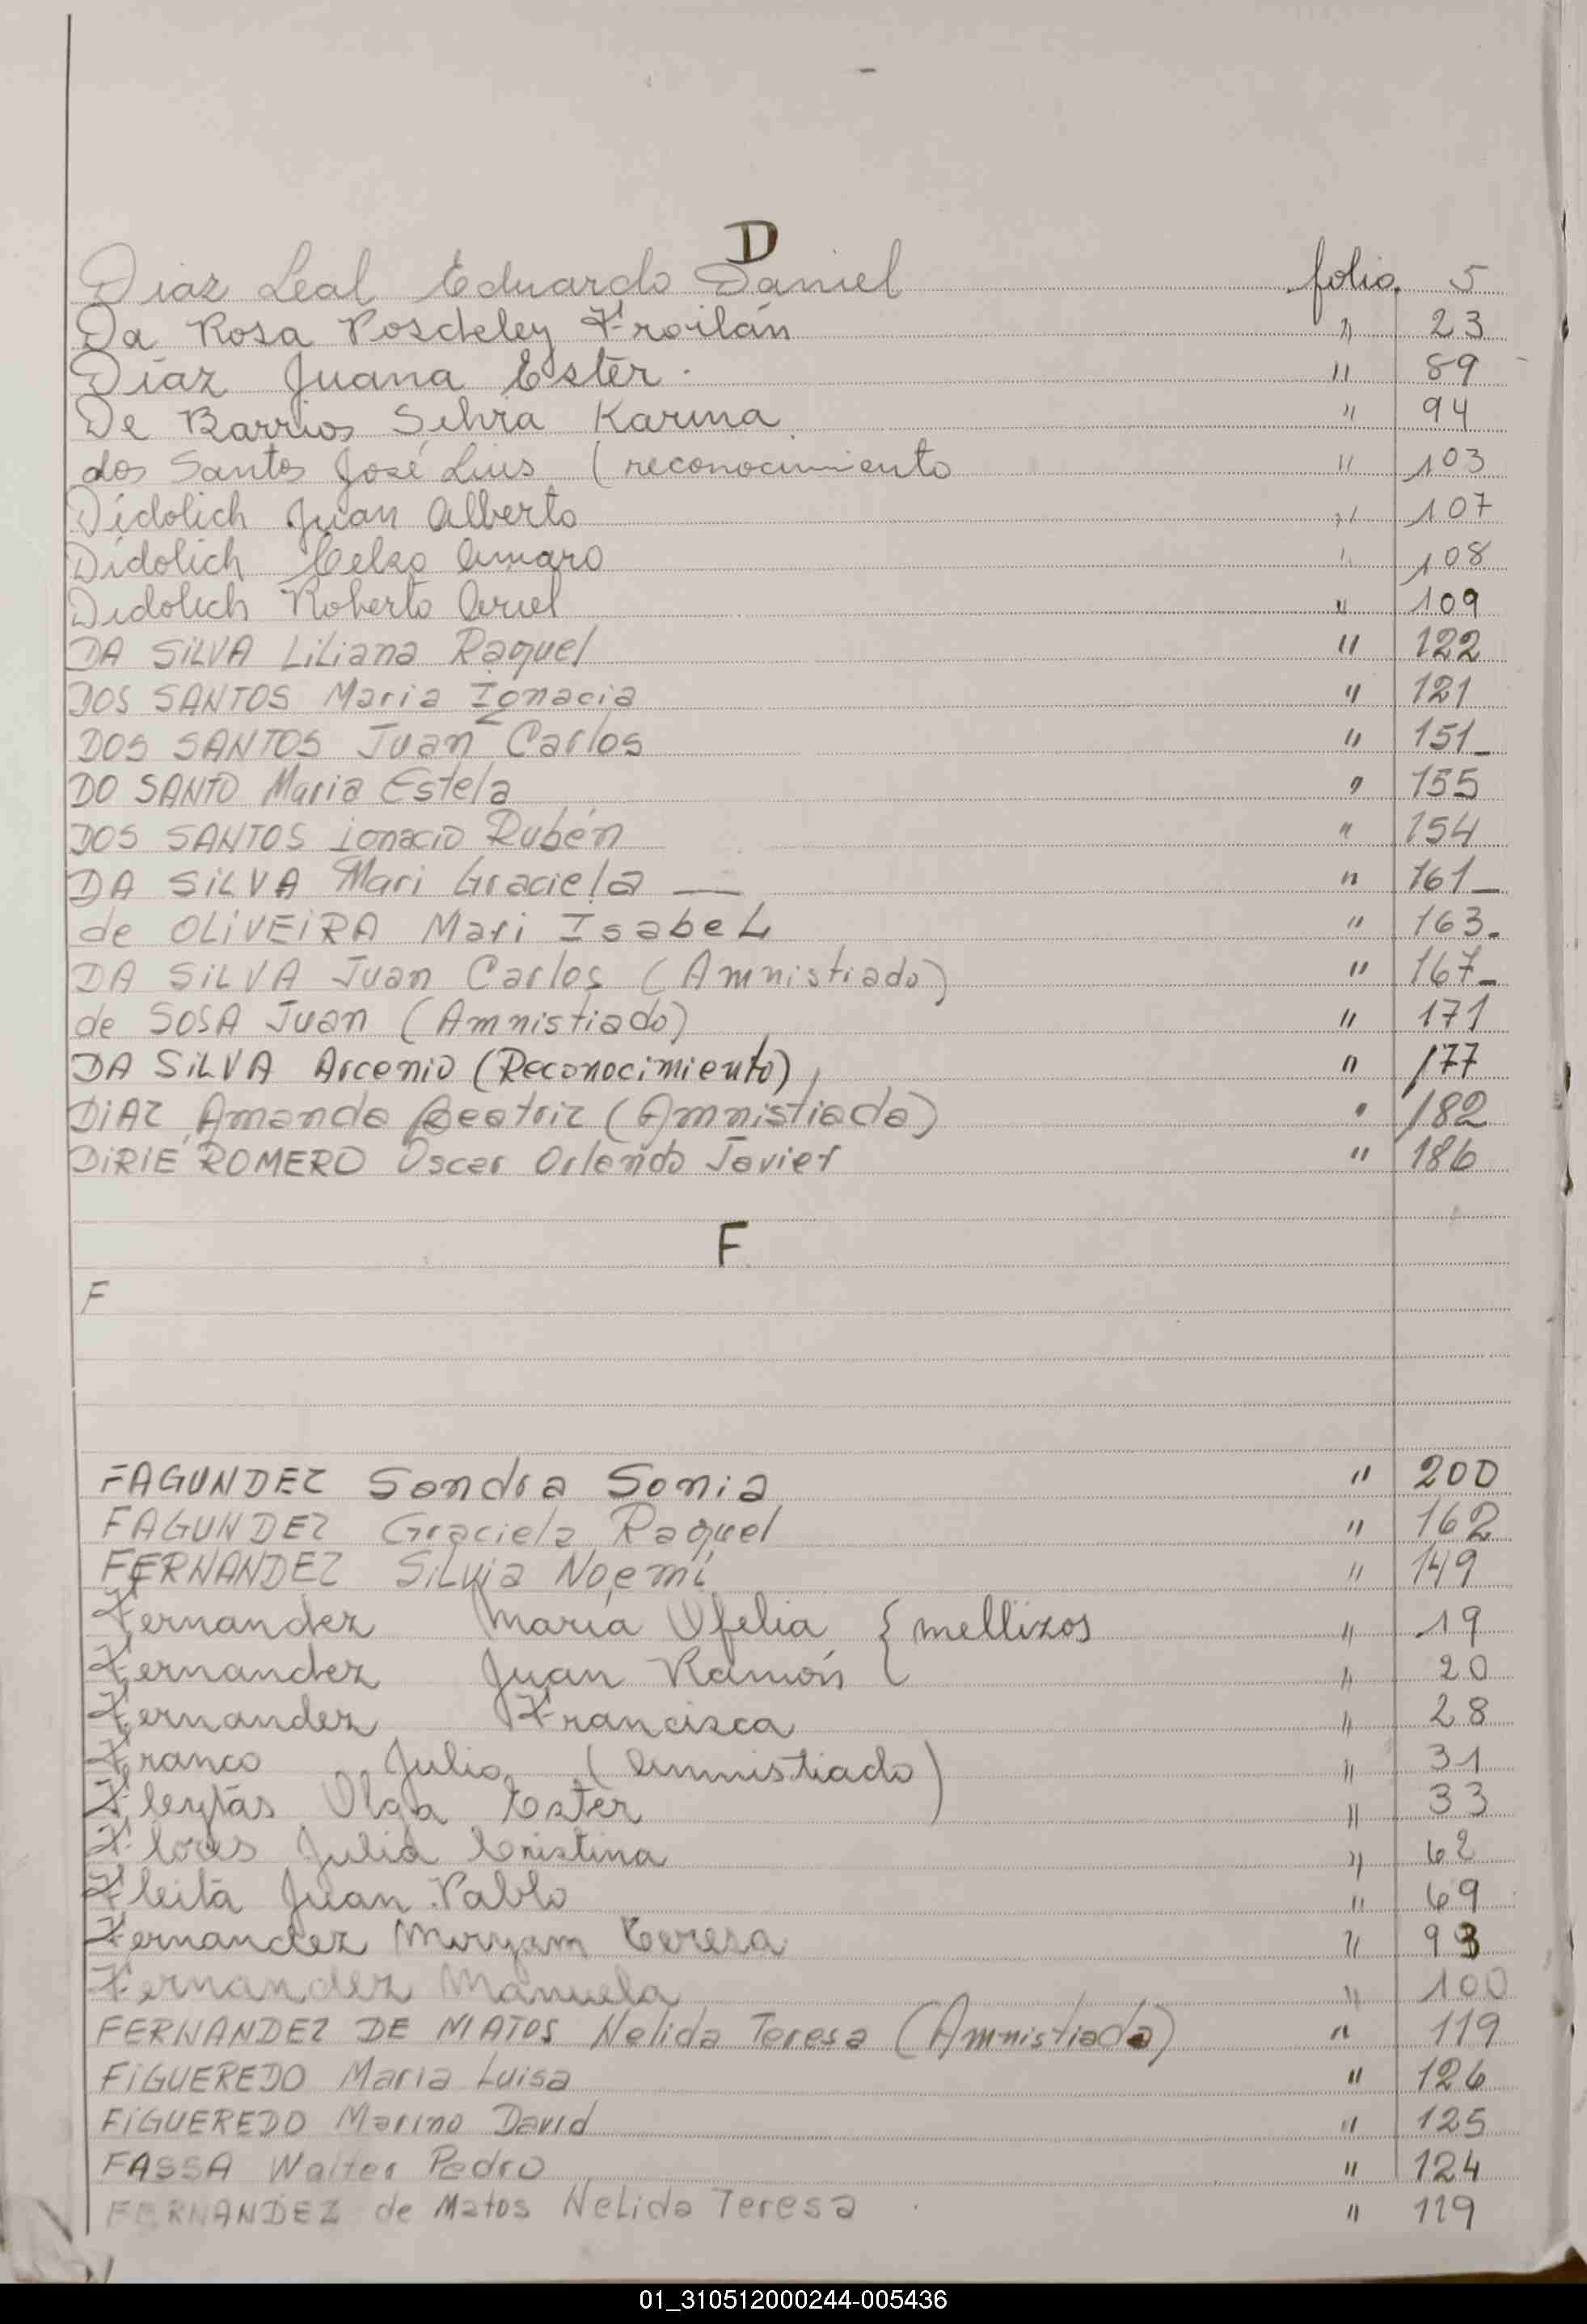 D
Diaz Leal Eduardo Daniel folio 5
Da Rosa Posdeley Froilán " 23
Diaz Juana Ester. " 89
De Barrios Silvia Karina " 94
dos Santos José Luis (reconocimiento " 103
Didolich Juan Alberto " 107
Didolich Celso Amaro " 108
Didolich Roberto Ariel " 109
DA SiLVA LiLiana Raquel " 122
DOS SANTOS Maria Ignacia " 121
DOS SANTOS Juan Carlos " 151_
DO SANTO Maria Estela " 155
DOS SANTOS ignacio Rubén " 154
DA SiLVA Mari Graciela — " 161_
de OLiVEiRA Mari IsabeL " 163.
DA SiLVA Juan Carlos (Amnistiado) " 167_
de SOSA Juan (Amnistiado) " 171
DA SiLVA Arcenio (Reconocimiento) " 177
DiAZ Amanda Beatriz (Amnistiada) " 182
DiRiE ROMERO Oscar Orlando Javier " 186
F
F
FAGUNDEZ Sandra Sonia " 200
FAGUNDEZ Graciela Raquel " 162
FERNANDEZ SiLvia Noemí " 149
Fernandez María Ofelia { mellizos " 19
Fernandez Juan Ramón " 20
Fernandez Francisca " 28
Franco Julio (Amnistiado) " 31
Fleytas Olga Ester " 33
Flores Julia Cristina " 62
Fleita Juan Pablo " 69
Fernandez Miryam Teresa " 93
Fernandez Manuela " 100
FERNANDEZ DE MATOS Nelida Teresa (Amnistiada) " 119
FiGUEREDO Maria Luisa " 126
FiGUEREDO Marino David " 125
FASSA Walter Pedro " 124
FERNANDEZ de Matos NeLida Teresa " 119
01_310512000244-005436